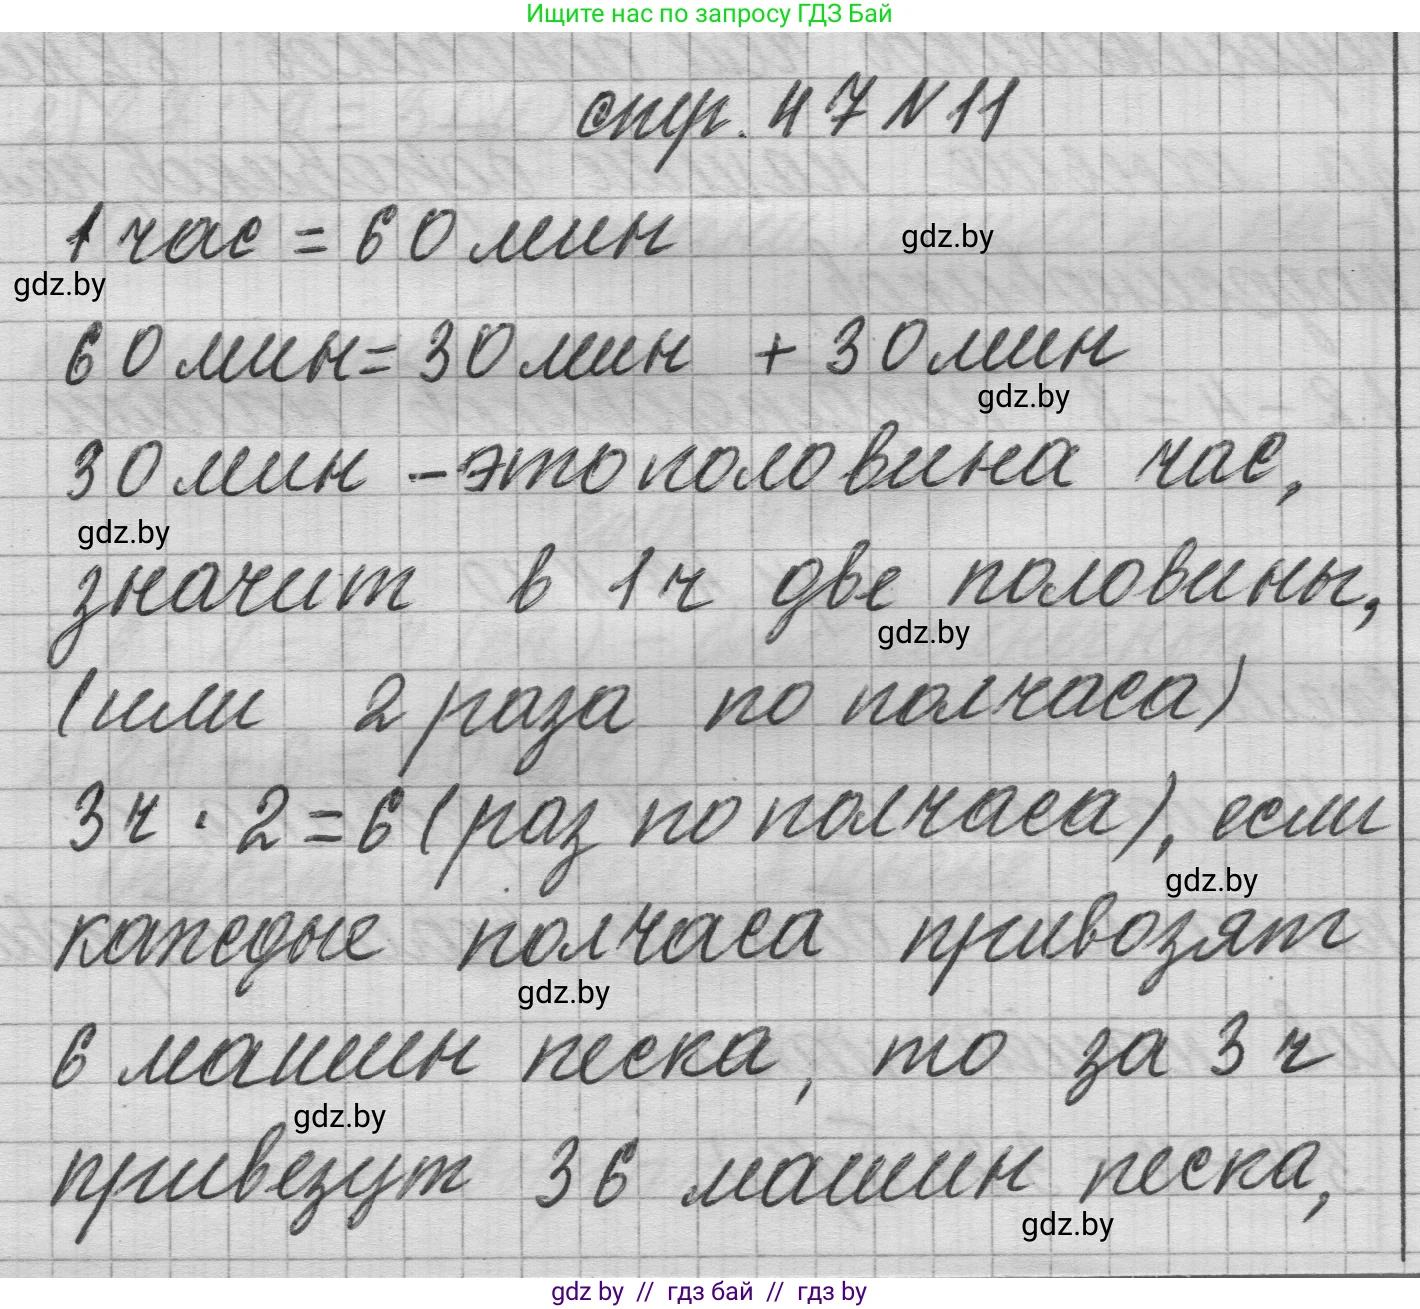 Ищите нас по запросу ГДЗ Бай
стр. 47 N 11
1 час = 60 мин
gdz.by
gdz.by
60 мин = 30 мин + 30 мин
gdz.by
30 мин - это половина час,
gdz.by
значит в 1 ч две половины,
gdz.by
(или 2 раза по полчаса)
3 ч · 2 = 6 (раз по полчаса), если
gdz.by
каждые полчаса привозят
gdz.by
6 машин песка, то за 3 ч
gdz.by
привезут 36 машин песка,
gdz.by
gdz by // гдз бай // гдз by